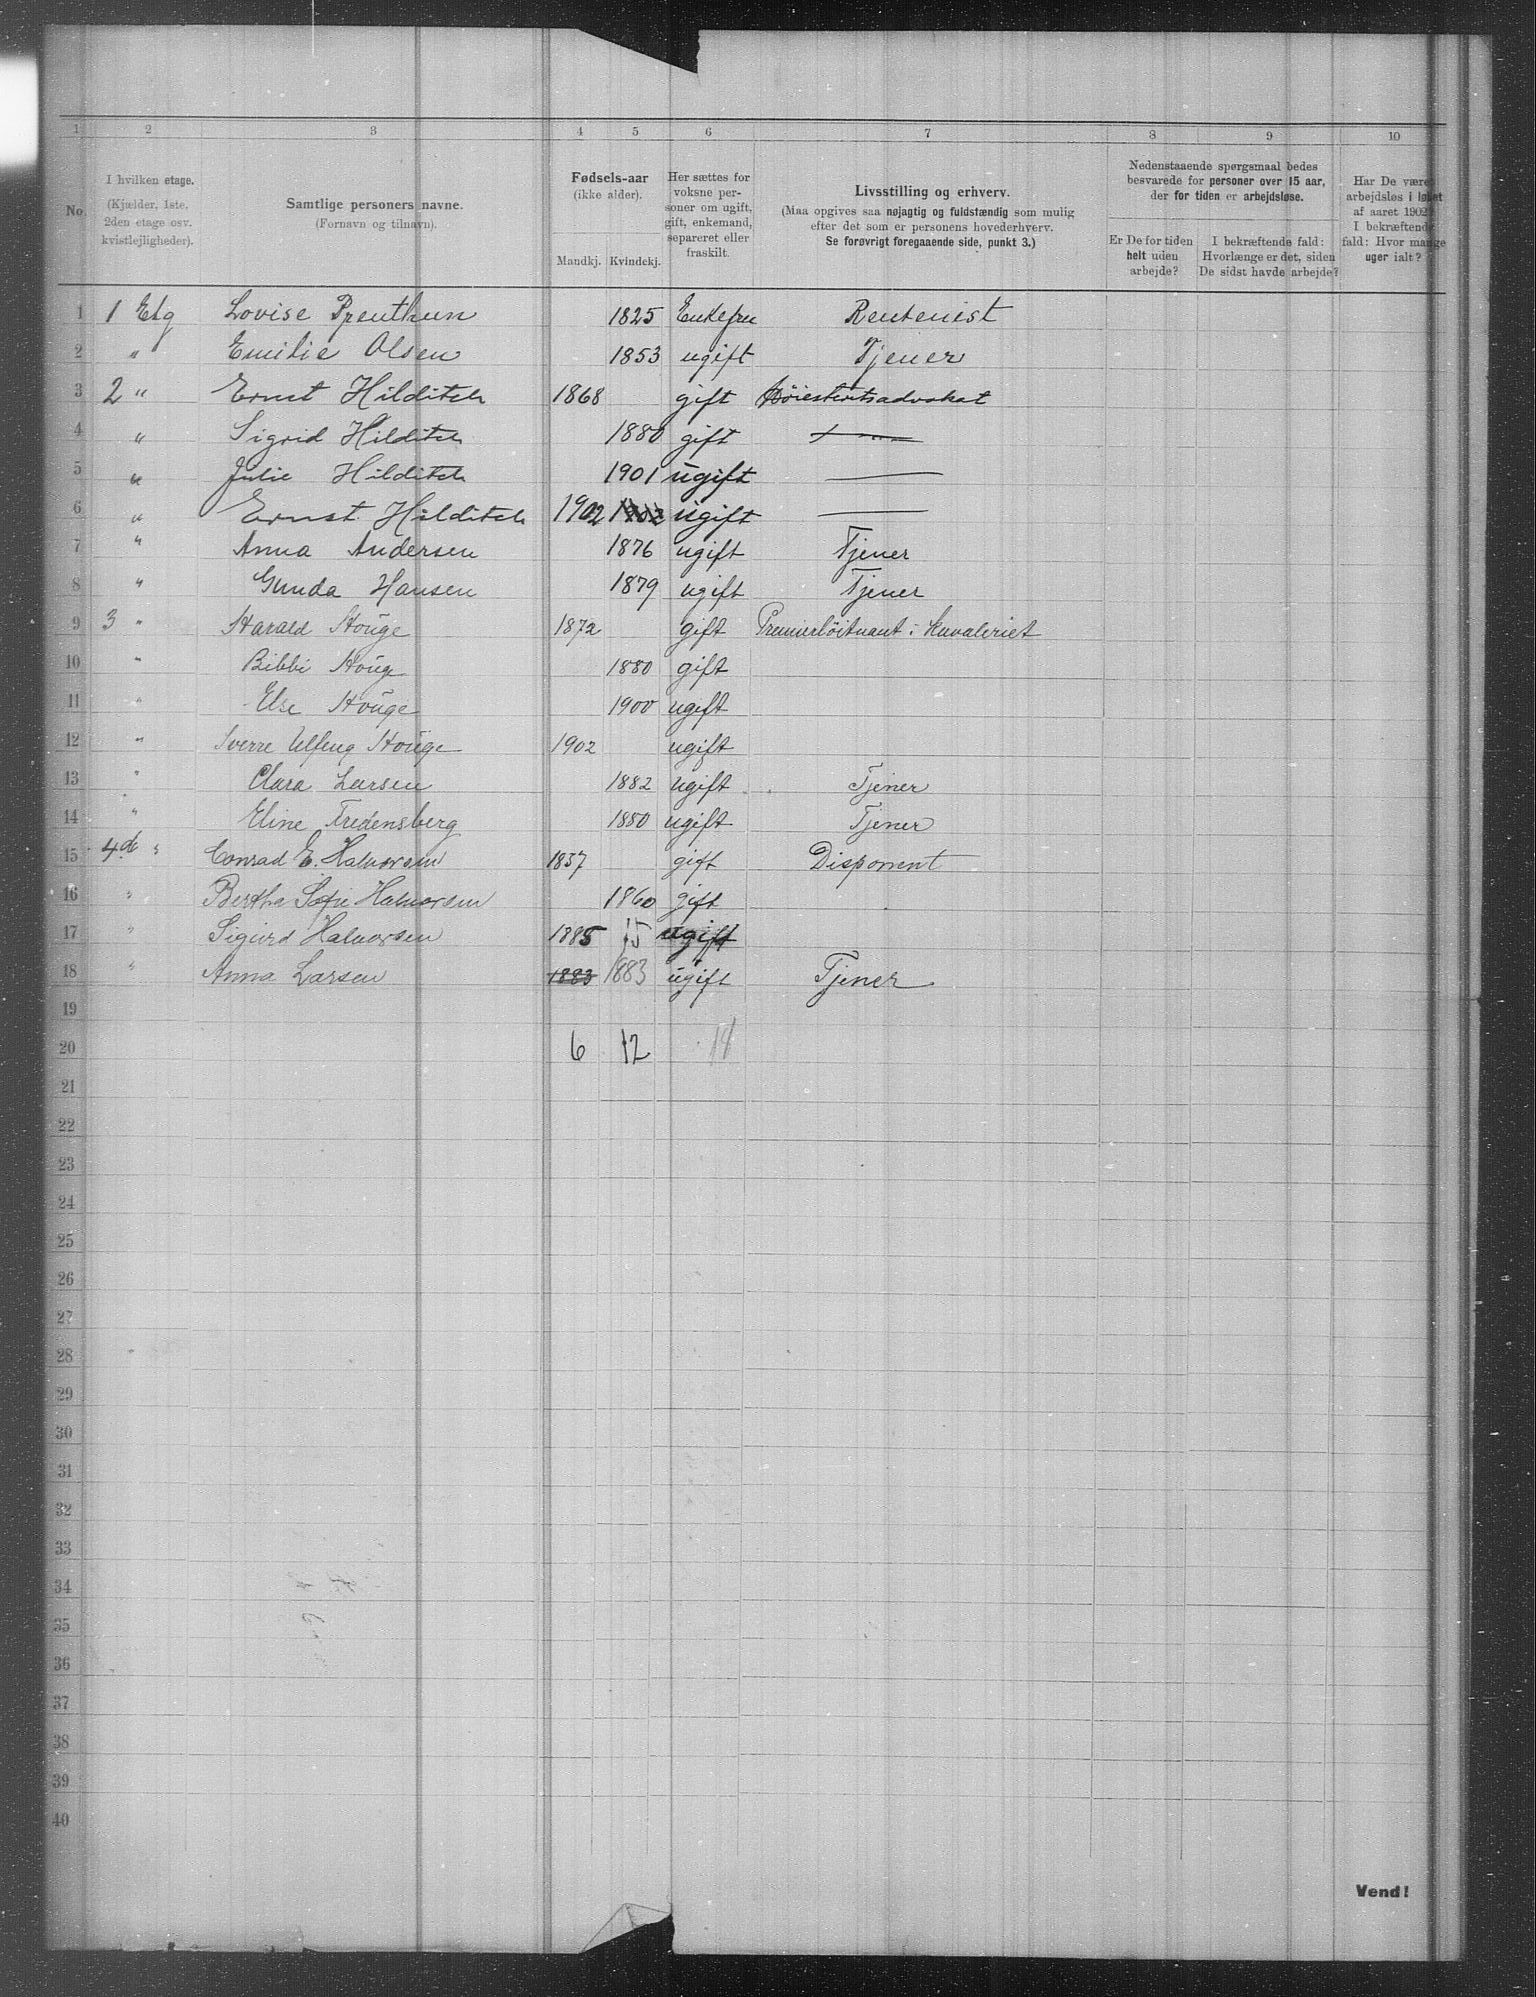 1 2 3 4 5 6 7 8 9 10
No.
I hvilken etage.
(Kjælder, 1ste,
2den etage osv.
kvistlejligheder).
Samtlige personers navne.
(Fornavn og tilnavn).
Fødsels-aar
(ikke alder).
Mandkj. Kvindekj.
Her sættes for
voksne per-
soner om ugift,
gift, enkemand,
separeret eller
fraskilt.
Livsstilling og erhverv.
(Maa opgives saa nøjagtig og fuldstændig som mulig
efter det som er personens hovederhverv.
Se forøvrigt foregaaende side, punkt 3.)
Nedenstaaende spørgsmaal bedes
besvarede for personer over 15 aar,
der for tiden er arbejdsløse.
Er De for tiden
helt uden
arbejde?
I bekræftende fald:
Hvorlænge er det, siden
De sidst havde arbejde?
Har De være
arbejdsløs i løbet
af aaret 1902?
I bekræftende
fald: Hvor mange
uger ialt?
1 1 Etg Lovise Preuthun 1825 Enkefru Rentenist
2 " Emilie Olsen 1853 ugift Tjener
3 2 " Ernst Hilditch 1868 gift Høiesteretsadvokat
4 " Sigrid Hilditch 1880 gift
5 " Julie Hilditch 1901 ugift
6 " Ernst Hilditch 1902 1902 ugift
7 " Anna Andersen 1876 ugift Tjener
8 " Gunda Hansen 1879 ugift Tjener
9 3 " Harald Houge 1872 gift Premierløitnant i Kavaleriet
10 " Bibbi Houg 1880 gift
11 " Else Houge 1900 ugift
12 " Sverre Houge 1902 ugift
13 " Clara Larsen 1882 ugift Tjener
14 " Eline Fredensberg 1880 ugift Tjener
15 4de " Conrad E. Halvorsen 1837 gift Disponent
16 " Bertha Sofie Halvorsen 1860 gift
17 " Sigurd Halvorsen 1885 15 ugift
18 " Anna Larsen 1883 1883 ugift Tjener
19
20 6 12
21
22
23
24
25
26
27
28
29
30
31
32
33
34
35
36
37
38
39
40
Vend!